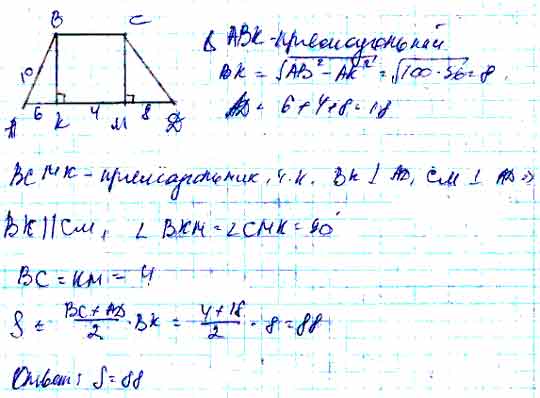 B C
10
A 6 K 4 M 8 D
Δ ABK - прямоугольный
BK = √AB² - AK² = √100 - 36 = 8.
AD = 6 + 4 + 8 = 18
BCMK - прямоугольник, т.к. BK ⊥ AD, CM ⊥ AD ⇒
BK || CM, ∠ BKM = ∠CMK = 90°
BC = KM = 4
S = BC + AD / 2 · BK = 4 + 18 / 2 · 8 = 88
Ответ: S = 88